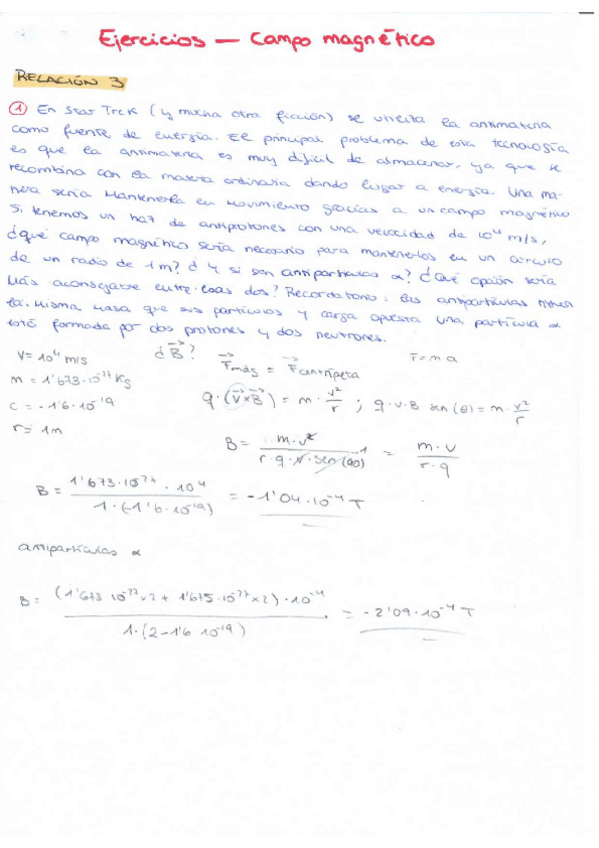 Ejercicios — Campo magnético
RELACIÓN 3
① En Star Trek (y mucha otra ficción) se utiliza la antimateria
como fuente de energía. El principal problema de esta tecnología
es que la antimateria es muy difícil de almacenar, ya que se
recombina con la materia ordinaria dando lugar a energía. Una ma-
nera sería mantenerla en movimiento gracias a un campo magnético
Si tenemos un haz de antiprotones con una velocidad de 10⁴ m/s,
¿qué campo magnético sería necesario para mantenerlos en un círculo
de un radio de 1m? ¿Y si son antipartículas α? ¿Qué opción sería
más aconsejable entre esas dos? Recordatorio: las antipartículas tienen
la misma masa que sus partículas y carga opuesta una partícula α
está formada por dos protones y dos neutrones.
V = 10⁴ m/s ¿B⃗? F⃗mag = F⃗centrípeta F = m a
m = 1'673·10⁻²⁷ Kg
q·(v⃗×B⃗) = m·v²/r ; q·v·B sen(θ) = m·v²/r
c = -1'6·10⁻¹⁹
r = 1m
B = m·v²/(r·q·v·sen(90)) = m·v/(r·q)
B = 1'673·10⁻²⁷·10⁴/(1·(-1'6·10⁻¹⁹)) = -1'04·10⁻⁴ T
antipartículas α
B = (1'673·10⁻²⁷×2 + 1'675·10⁻²⁷×2)·10⁻⁴/(1·(2-1'6·10⁻¹⁹)) = -2'09·10⁻⁴ T